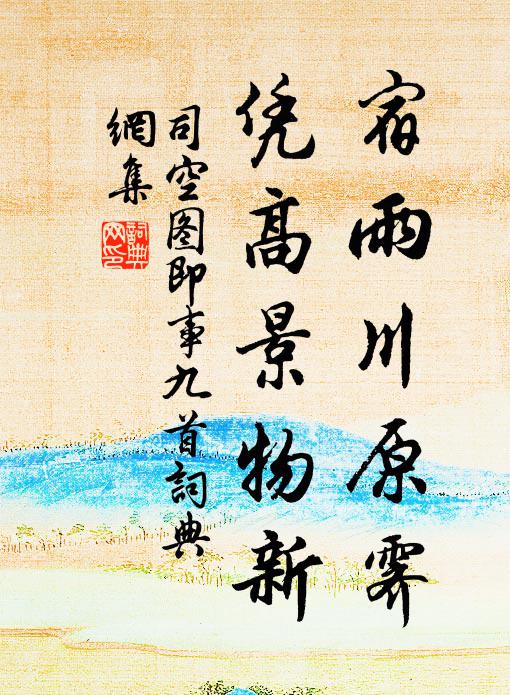 宿雨川原霽
凭高景物新
司空图即事九首詞典
網集
詞典
网印